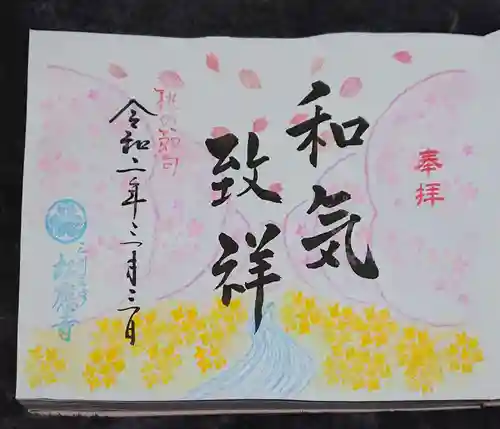 奉拝
和気
致祥
桃の節句
令和二年三月三日